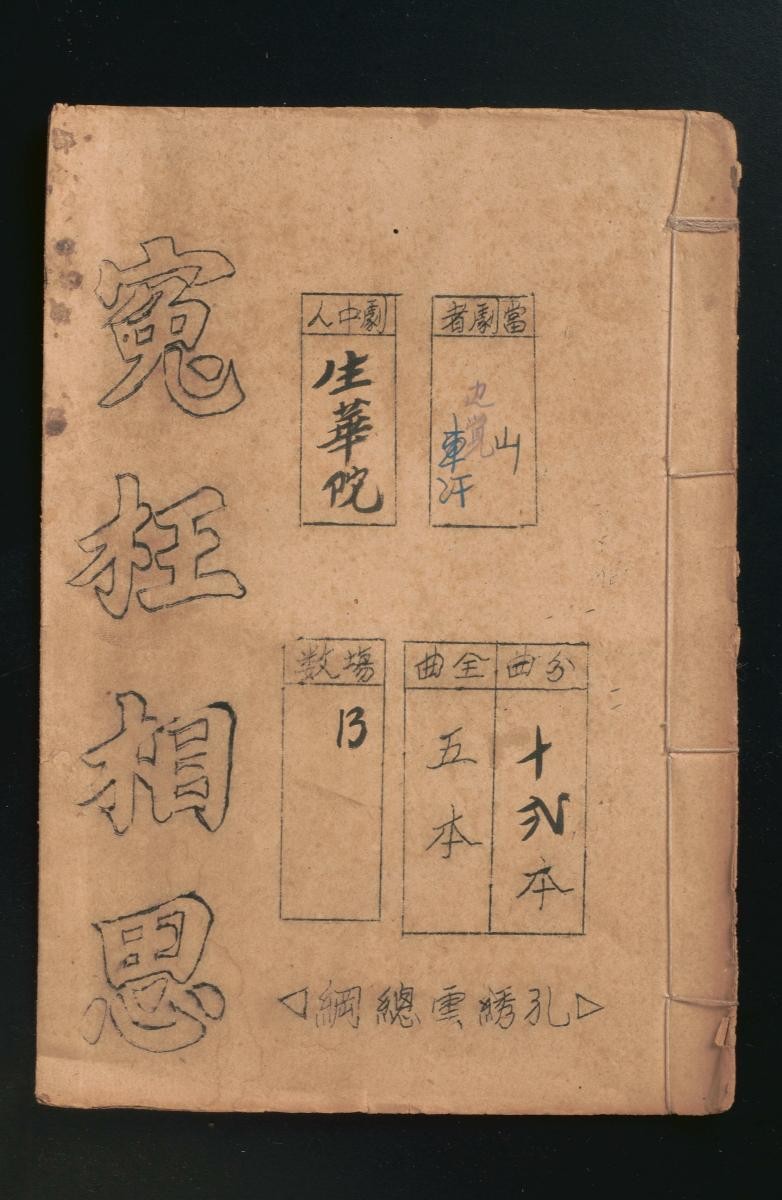 冤枉相思
當劇者
山
車汗
劇中人
生華院
分曲
十弍本
全曲
五本
塲数
13
孔綉雲總綱